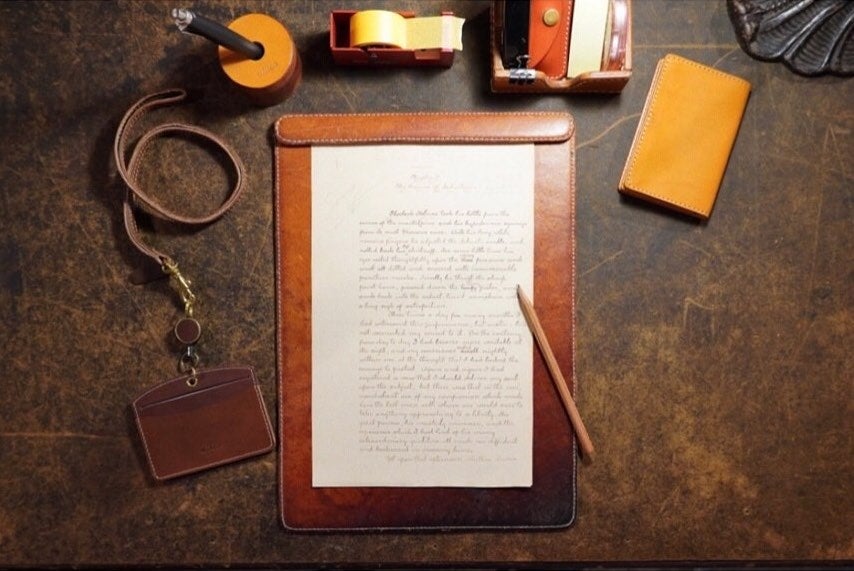 Sherlock Holmes took his bottle from the
corner of the mantelpiece and his hypodermic syringe
from its neat Morocco case. With his long white
nervous fingers he adjusted the delicate needle and
rolled back his shirtcuff. For some little time his
eyes rested thoughtfully upon the forearm and
wrist all dotted and scarred with innumerable
puncture marks. Finally he thrust the sharp
point home, pressed down the piston, and
sank back into the velvet lined armchair with
a long sigh of satisfaction.
Three times a day for many months I
had witnessed this performance, but custom had
not reconciled my mind to it. On the contrary
from day to day I had become more irritable at
the sight, and my conscience nightly
within me at the thought that I had lacked the
courage to protest. Again and again I had
registered a vow that I should deliver my soul
upon the subject, but there was that in the cool,
nonchalant air of my companion which made
him the last man with whom one would care to
take anything approaching to a liberty. His
great powers, his masterly manner, and the
experience which I had had of his many
extraordinary qualities all made me diffident
and backward in crossing him.
Yet upon that afternoon, whether